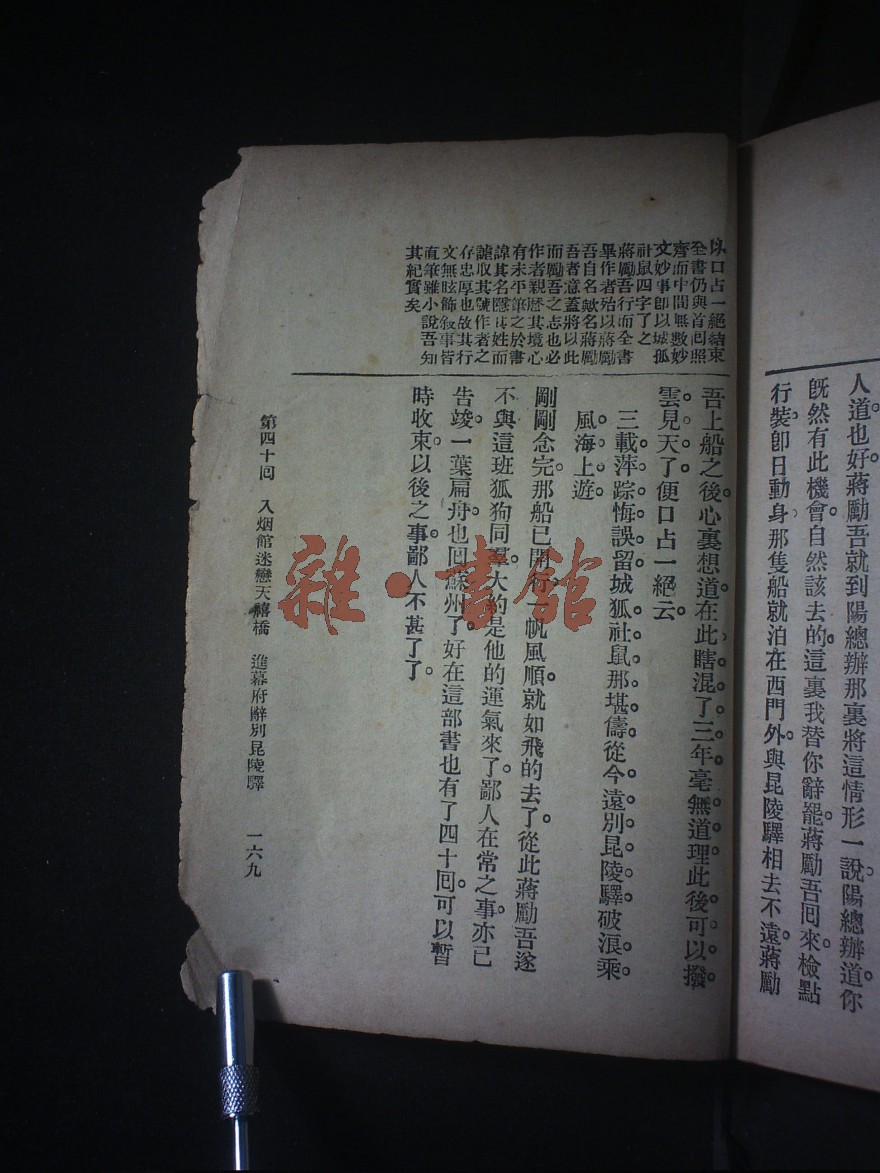 人道也好蔣勵吾就到陽總辦那裏將這情形一說陽總辦道你
既然有此機會自然該去的這裏我替你辭罷蔣勵吾囘來檢點
行裝卽日動身那隻船就泊在西門外與昆陵驛相去不遠蔣勵
以口占一絕結束
全書仍與首囘照
齊而中間無數妙
文妙事卽以城狐
社鼠四字了之
蔣勵吾行而全書
畢作者殆以蔣勵
吾自名歟名蔣勵
吾者意蓋將以此
而勵吾之志也必
作者親歷其境心
有未平筆之於書
諱其名隱其姓而
謔取其號作者之
存忠厚也故其行
文無眩飾敍事皆
直筆雖小說吾知
其紀實矣
吾上船之後。心裏想道在此瞎混了三年毫無道理此後可以撥
雲見天了。便口占一絕云。
三載萍踪悔誤留。城狐社鼠那堪儔。從今遠別昆陵驛。破浪乘
風海上遊。
剛剛念完。那船已開行一帆風順。就如飛的去了。從此蔣勵吾遂
不與這班狐狗同羣。大約是他的運氣來了。鄙人在常之事。亦已
告竣。一葉扁舟。也囘蘇州了。好在這部書也有了四十囘。可以暫
時收束。以後之事。鄙人不甚了了。
第四十囘 入烟館迷戀天禧橋 進幕府辭別昆陵驛 一六九
雜·書館